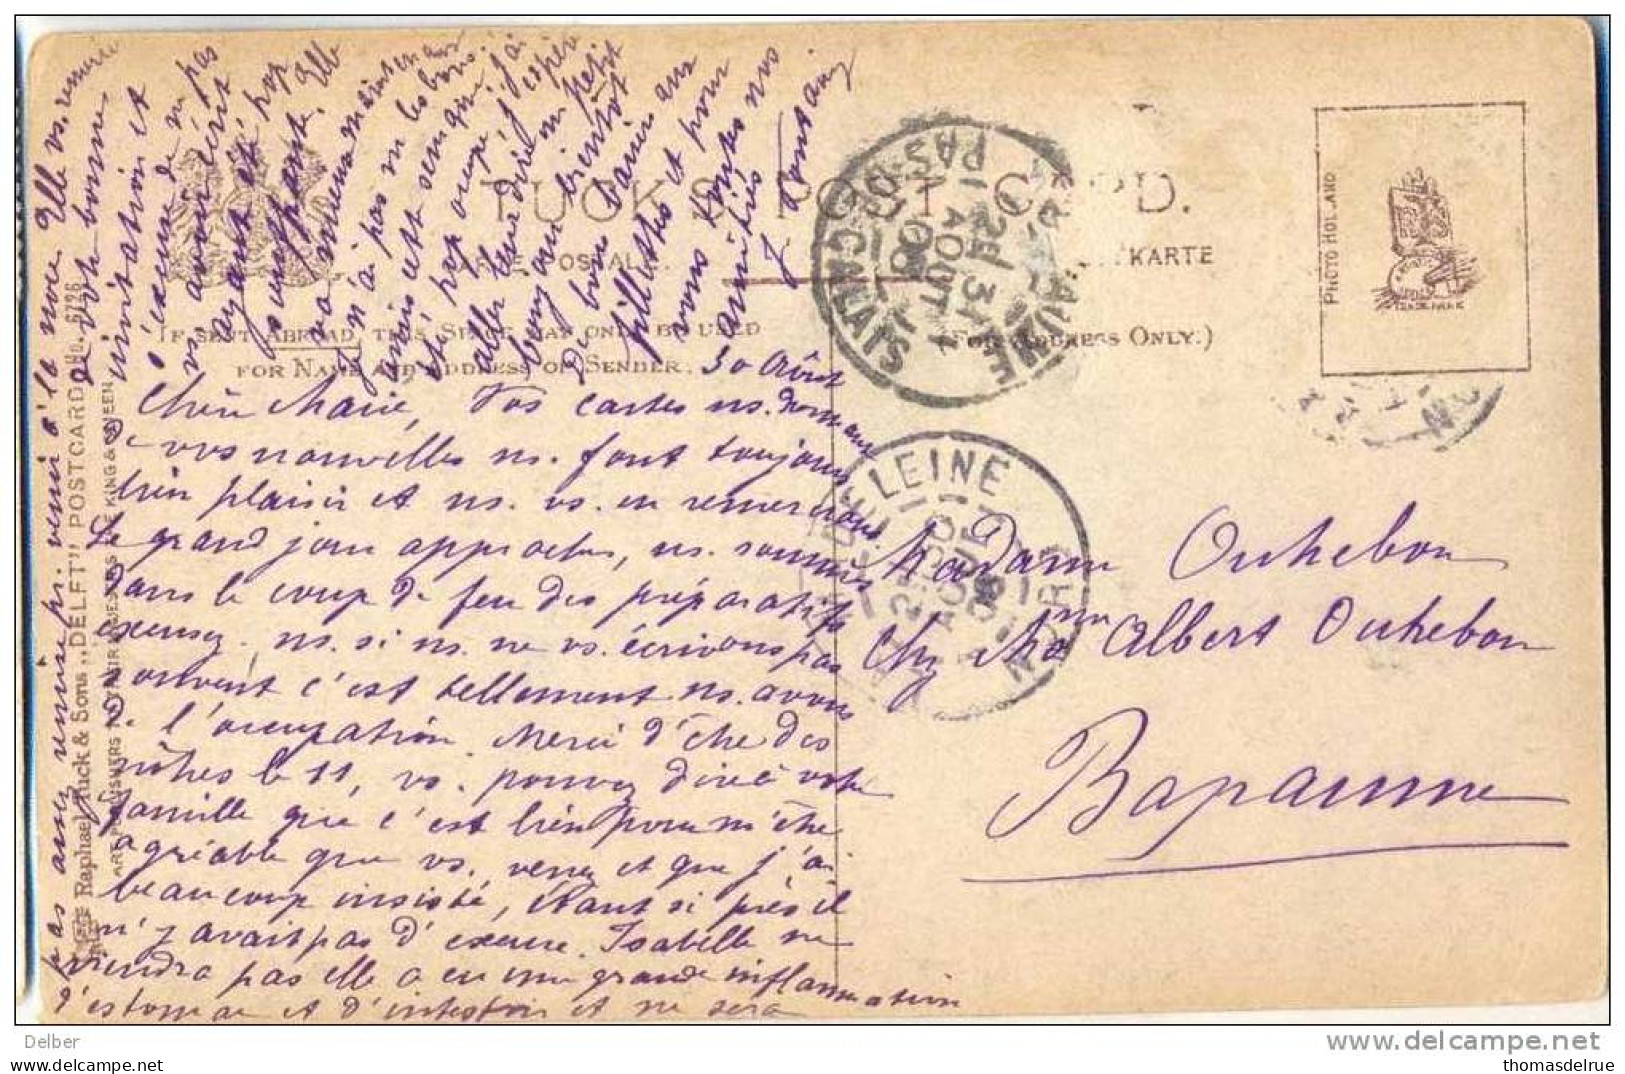 TUCK'S POST CARD.
CARTE POSTALE.
KARTE
IF SENT ABROAD, THIS SPACE MAY ONLY BE USED
FOR NAME AND ADDRESS OF SENDER.
(FOR ADDRESS ONLY.)
PHOTO HOLLAND
TRADE MARK
Raphael Tuck & Sons „DELFT" POSTCARD No. 6726
KING & QUEEN
30 Août
Chère Marie, Vos cartes ns. donnant
de vos nouvelles ns. font toujours
bien plaisir et ns. vs. en remercions
Le grand jour approche, ns. sommes
dans le coup de feu des préparatifs
excusez ns. si ns. ne vs. écrivons pas
souvent c'est tellement ns. avons
de l'occupation. Merci d'être des
nôtres le 11, vs. pouvez dire à votre
famille que c'est bien pour m'être
agréable que vs. venez et que j'ai
beaucoup insisté, étant si près il
n'y avait pas d'excuse. Isabelle ne
viendra pas elle a eu une grande inflammation
d'estomac et d'intestin et ne sera
pas assez remise pr. venir à la noce Elle vs. remercie
de votre bonne
invitation et
s'excuse de ne pas
vs. avoir écrit
ayant été trop
souffrante. Elle
va mieux maintenant
Je n'ai pas eu les bons.
été trop occupé, j'espère
aller leur dire un petit
bonjour bientôt
De bons baisers aux
fillettes et pour
vous toutes nos
amitiés
J. Fontaine
Madame Outrebon
chez Mme Albert Outrebon
Bapaume
BAPAUME
PAS-DE-CALAIS
31
AOUT
06
LEINE
30
AOUT
06
Delber
www.delcampe.net
thomasdelrue